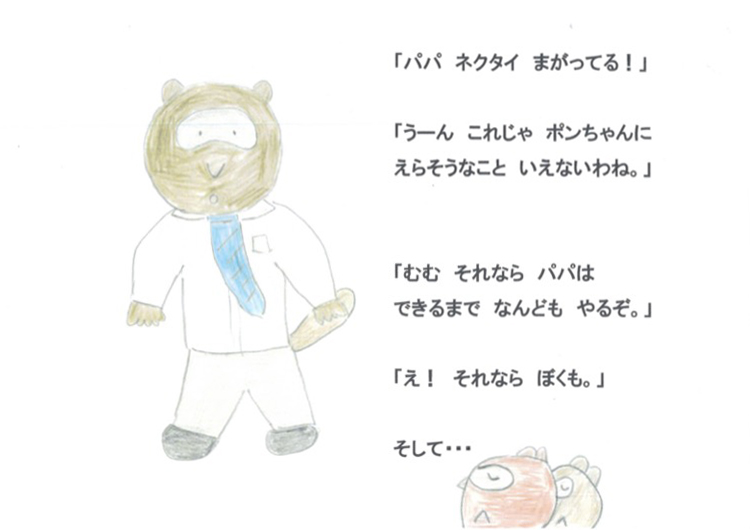 「パパ　ネクタイ　まがってる！」
「うーん　これじゃ　ポンちゃんに
えらそうなこと　いえないわね。」
「むむ　それなら　パパは
できるまで　なんども　やるぞ。」
「え！　それなら　ぼくも。」
そして・・・